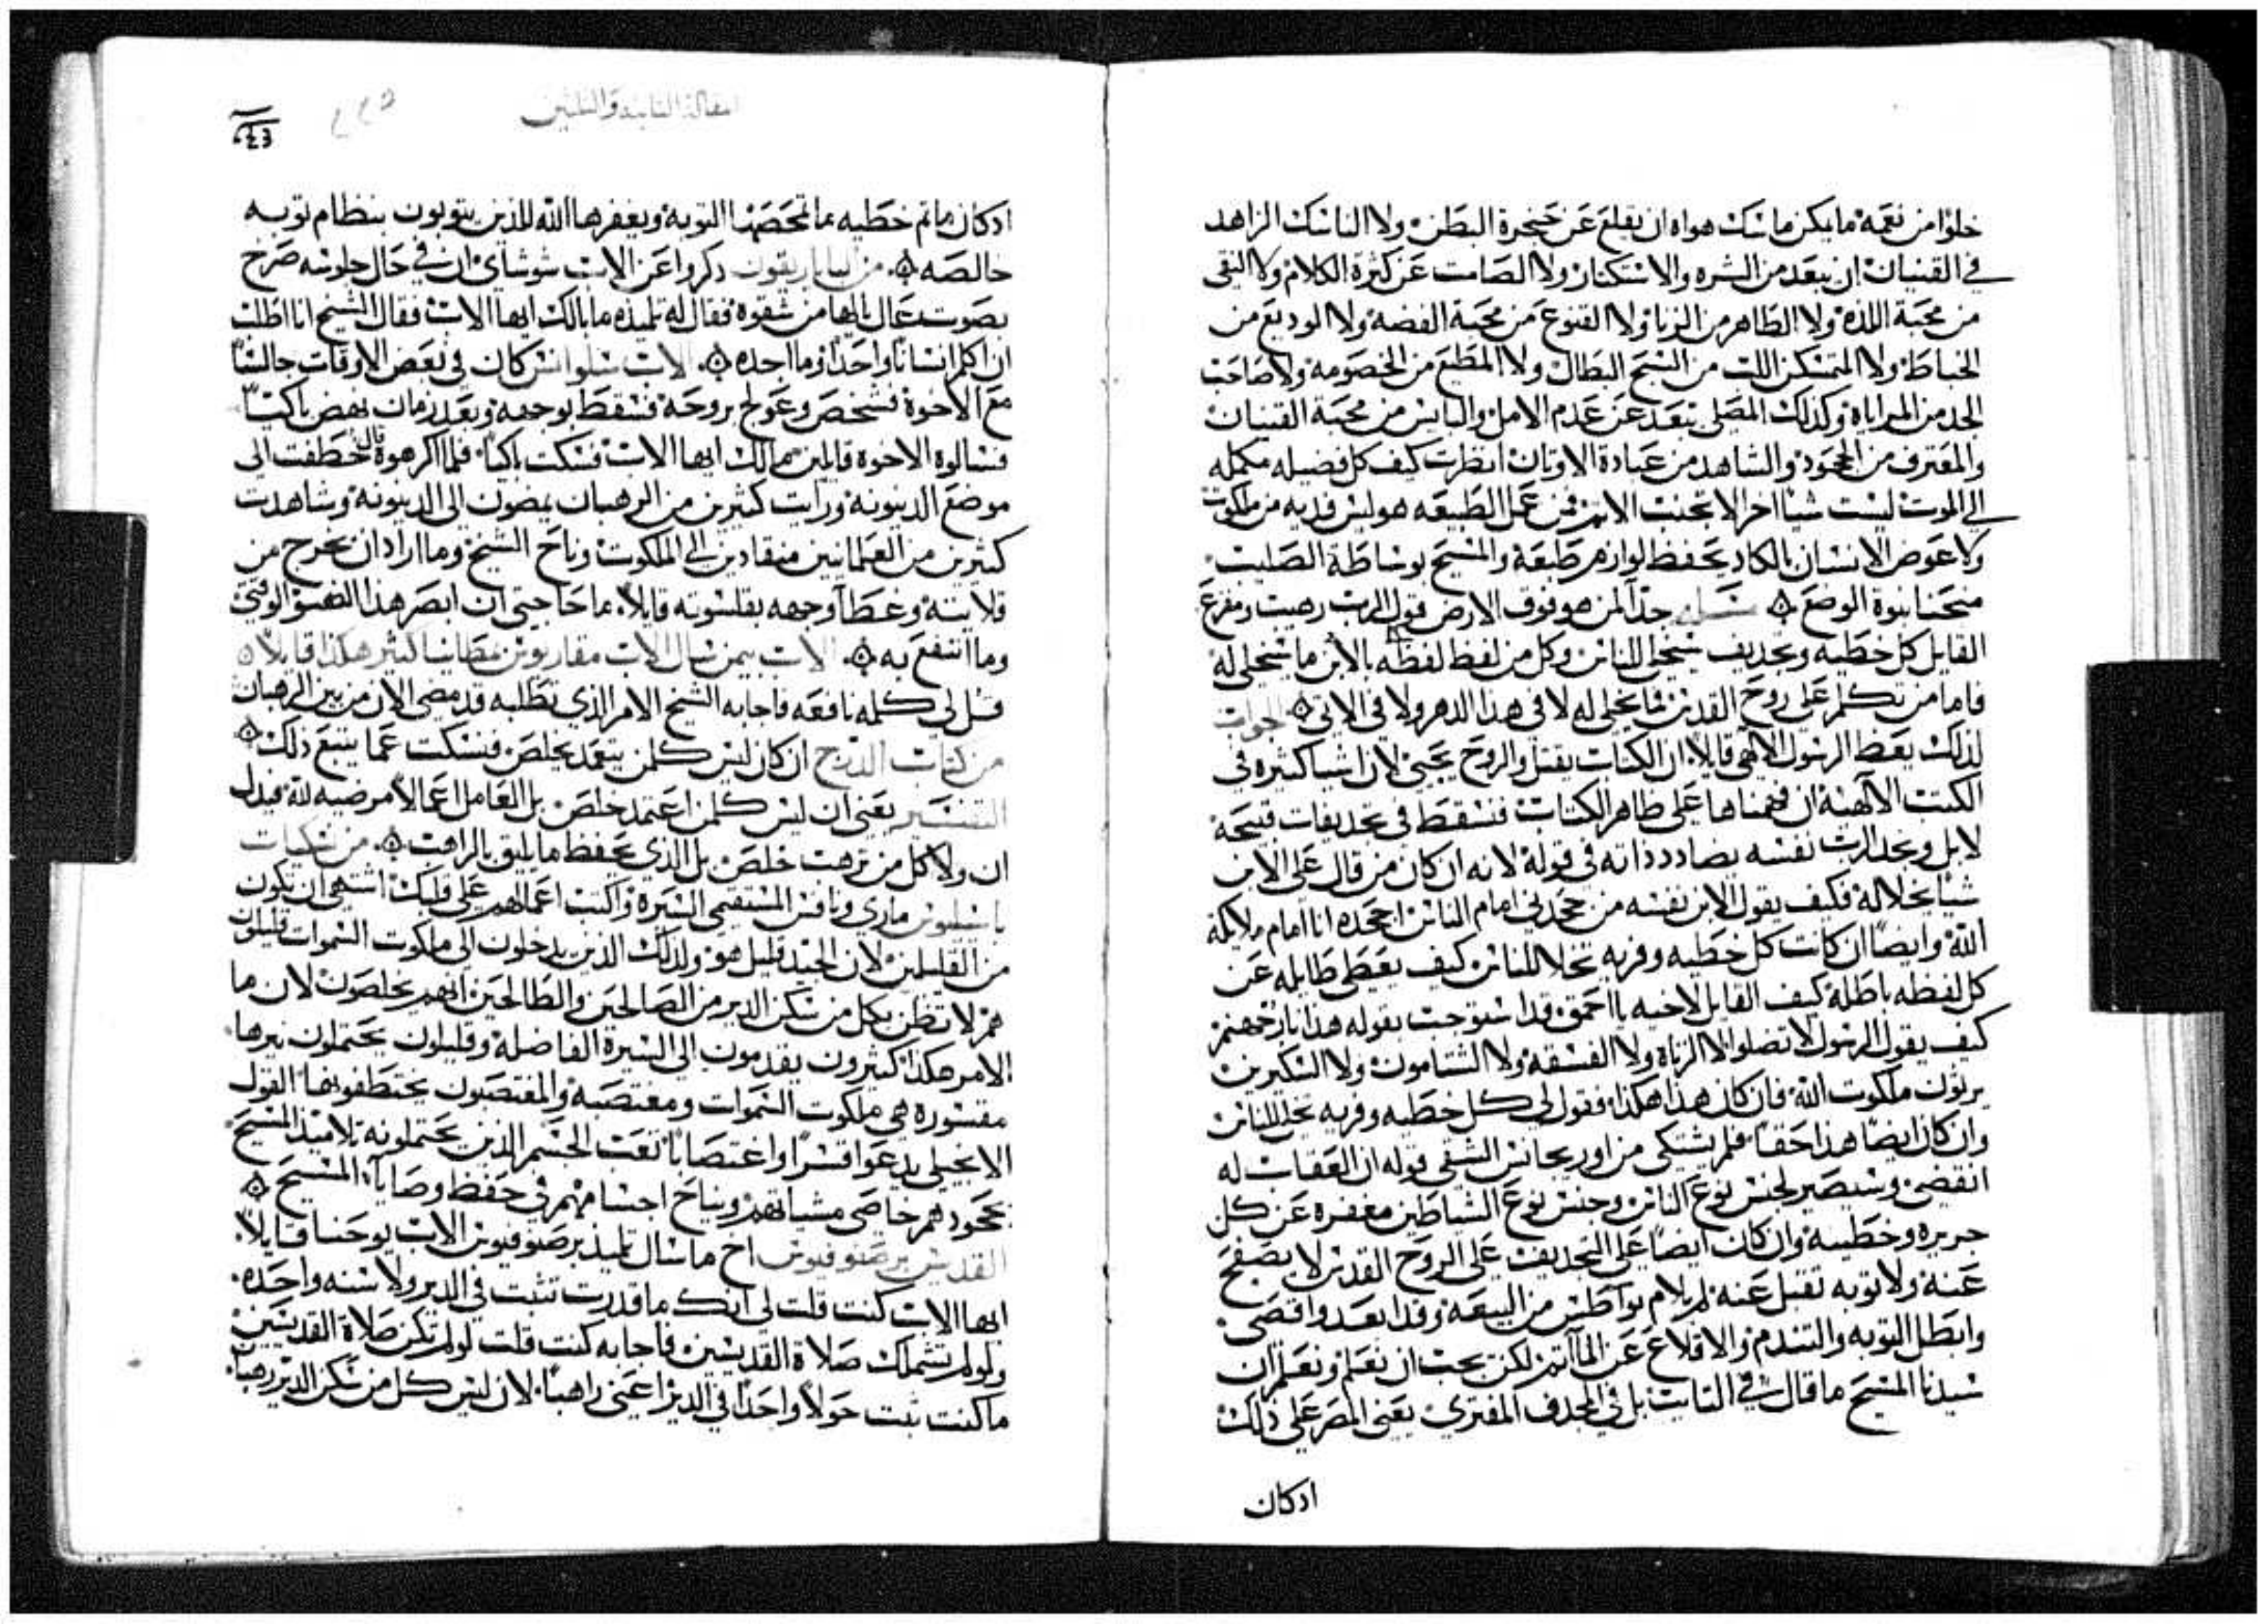 خلوا من نعمة ما يمكن ماسك هواه ان يقلع عن حنجرة البطن ولا الناسك الزاهد
في القنيان ان يبعد من الشره والاستكثار ولا الصامت عن كثرة الكلام ولا النقي
من محبة اللذة ولا الطاهر من الزنا ولا القنوع من محبة الفضة ولا الوديع من
ولا المتمسكن اللت من السبح البطال ولا المطيع من الخصومة ولا صاحب
الجد من المراياة وكذلك المصلي يبعد عن عدم الامل واليايس من محبة القنيان
والمعترف من الجحود والشاهد من عبادة الاوتان انظرت كيف كل فضيله مكمله
الى الموت ليست شيا اخر الا تجنب الاثم فمن عمل الطبيعه هو ليس فديه من ملكوت
ولا عوض الانسان بالكاد يحفظ لوازم طبعة والمسيح بوساطة الصليب
منحنا بنوة الوضع ۞ جدا لمن هو فوق الارض قول الرب رهيب ومفزع
القايل كل خطيه وتجديف سيخلى للناس وكل من لفظ لفظه بالابن ما سيخلى له
فاما من تكلم على روح القدس فما يخلى له لا في هذا الدهر ولا في الاتي ۞ جواب
لذلك يعظ الرسول الالهي قايلا ان الكتاب يقتل والروح يحيي لان اشيا كثيره في
الكتب الالهية ان فهمناها على ظاهر الكتاب فنسقط في تجديفات قبيحة
لابل ونجد الرب نفسه يضادد ذاته في قوله لانه ان كان من قال على الابن
شيا يخلا له فكيف يقول الابن نفسه من جحدني امام الناس اجحده انا امام ملايكة
الله وايضا ان كانت كل خطيه وفريه تخلا للناس كيف يعطي طايله عن
كل لفظه باطله كيف القايل لاخيه يا احمق قد استوجب بقوله هذا نار جهنم
كيف يقول الرسول لا تضلوا لا الزناة ولا الفسقه ولا الشتامون ولا السكيرين
يرثون ملكوت الله فان كان هذا هكذا فقول لي كل خطيه وفريه تخلى للناس
وان كان ايضا هذا حقا فلم يشتكى من اوريجانس الشقي قوله ان العقاب له
انقضى وسيصير لجنس نوع الناس وجنس نوع الشياطين مغفره عن كل
جريره وخطيه وان كان ايضا على التجديف على الروح القدس لا يصفح
عنه ولا توبه تقبل عنه لم يلام نواطس من البيعة وقد ابعد واقصى
وابطل التوبه والتندم والاقلاع عن المآثم لكن يجب ان نعلم ونعلم ان
سيدنا المسيح ما قال في التايب بل في المجدف المفتري يعني المصر على ذلك
اد كان
المقالة الثانية والثلثين
اد كان ما تم خطيه ما تمحصها التوبة ويغفرها الله للذين يتوبون بنظام توبه
خالصه ۞ من الباباريقون ذكروا عن الاب شوشاي ان في حال جلوسه صرخ
بصوت عال يا لها من شقوة فقال له تلميذه ما بالك ايها الاب فقال الشيخ انا اطلب
ان اكلم انسانا واحدا وما اجده ۞ الاب سلوانس كان في بعض الاوقات جالسا
مع الاخوة فشخص وعولج بروحه فسقط بوجهه وبعد زمان نهض باكيا
فسالوه الاخوة قايلين ما لك ايها الاب فسكت باكيا فلما اكرهوه قال خطفت الى
موضع الدينونة ورايت كثيرين من الرهبان يمضون الى الدينونة وشاهدت
كثيرين من العلمانيين منقادين الى الملكوت وناح الشيخ وما اراد ان يخرج من
قلايته وغطا وجهه بقلنسوته قايلا ما حاجتي ان ابصر هذا الضو الوقتي
وما انتفع به ۞ الاب بيمن سال الاب مقاريوس كثير هكذا قايلا ۞
قل لي كلمه نافعه فاجابه الشيخ الامر الذي تطلبه قد مضى الان من بين الرهبان
من كتاب الدرج ان كان ليس كلمن يتعمد يخلص فنسكت عما يتبع ذلك ۞
التفسير يعني ان ليس كلمن اعتمد خلص بل العامل اعمالا مرضيه لله فيدل
ان ولا كل من ترهب خلص بل الذي يحفظ ما يليق بالراهب ۞ من نسكيات
باسيليوس ماري ونافس المستقيمي السيرة واكتب اعمالهم على قلبك اشتهي ان تكون
من القليلين لان الجيد قليل هو ولذلك الذين يدخلون الى ملكوت السموات قليلون
هم لا تظن بكل من سكن الدير من الصالحين والطالحين انهم يخلصون لان ما
الامر هكذا كثيرون يقدمون الى السيرة الفاضلة وقليلون يحتملون نيرها
مقسورة هي ملكوت السموات ومغتصبة والمغتصبون يختطفونها القول
الانجيلي يدعوا قسرا واغتصابا تعب الجسم الذين يحتملونه تلاميذ المسيح
بجحودهم خاصي مشياتهم ونياح اجسامهم في حفظ وصايا المسيح ۞
القديس برصنوفيوس اخ ما سال تلميذ برصنوفيوس الاب يوحنا قايلا
ايها الاب كنت قلت لي انك ما قدرت تثبت في الدير ولا سنه واحده
ولو لم تشملك صلاة القديسين فاجابه كنت قلت لو لم تكن صلاة القديسين
ما كنت ثبت حولا واحدا في الدير اعني راهبا لان ليس كل من سكن الدير رهب